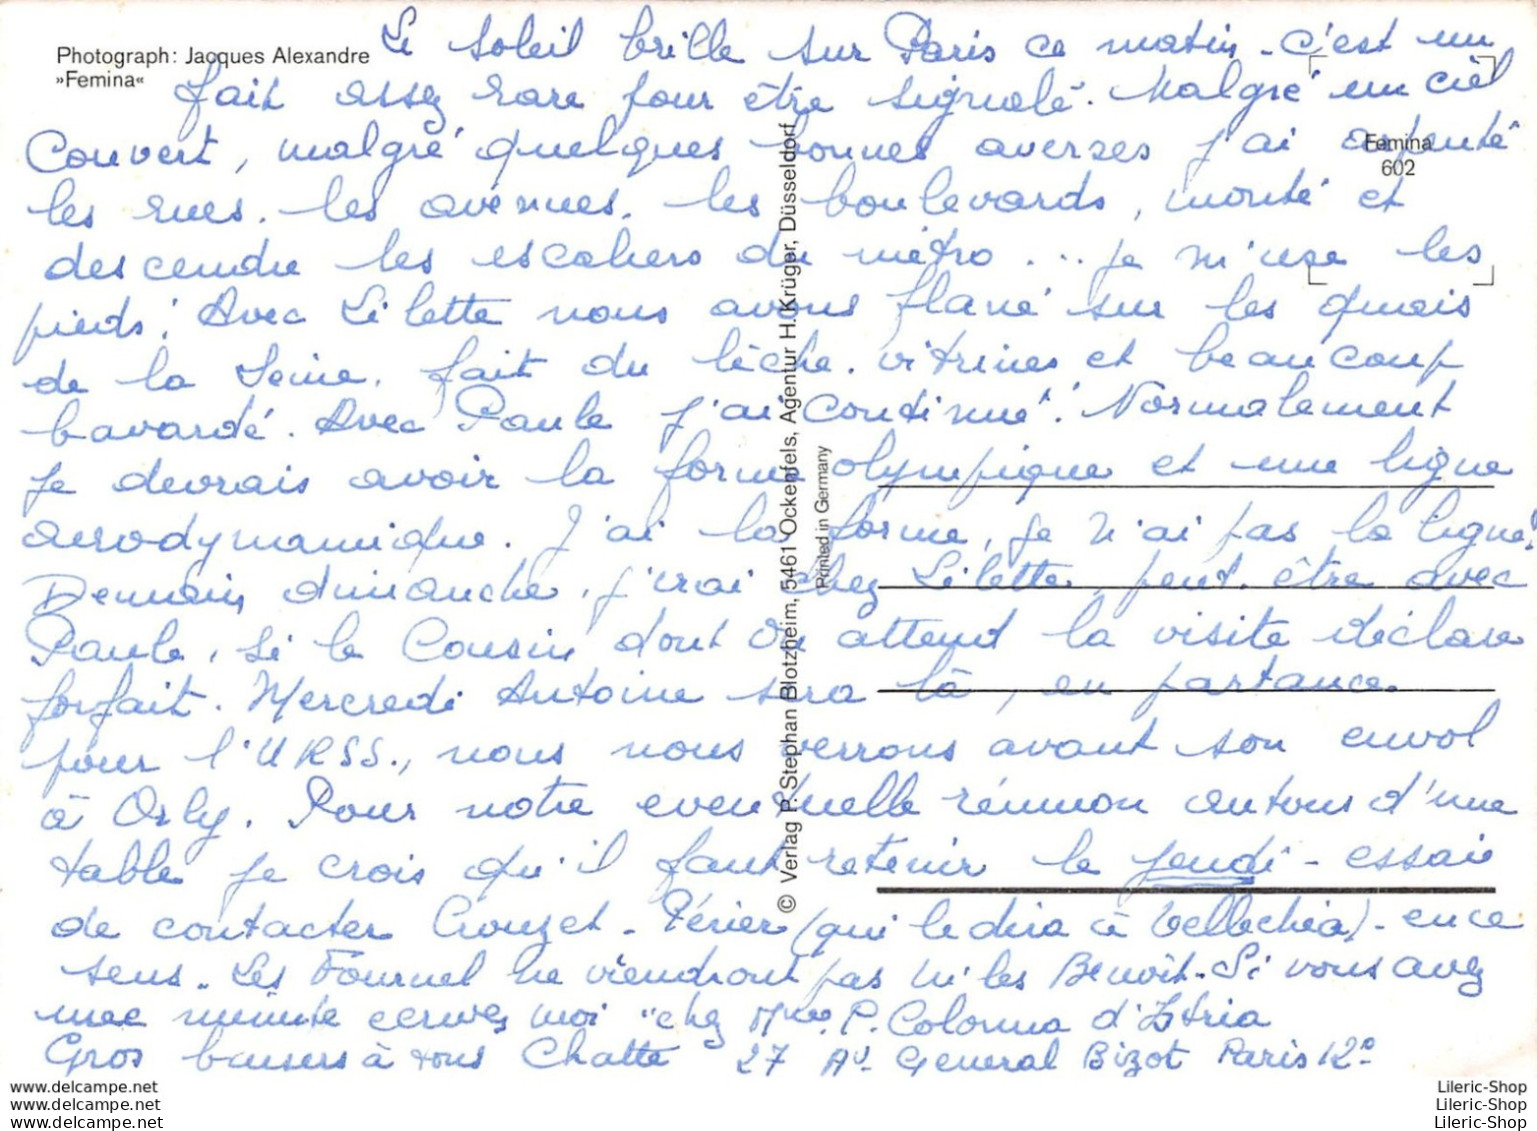 Photograph: Jacques Alexandre
»Femina«
Le soleil brille sur Paris ce matin - c'est un
fait assez rare pour être signalé. Malgré un ciel
Couvert, malgré quelques bonnes averses j'ai arpenté
les rues. les avenues. les boulevards, monté et
descendu les escaliers du métro... je m'use les
pieds! Avec Lilette nous avons flané sur les quais
de la Seine, fait du lèche-vitrines et beaucoup
bavardé. Avec Paule j'ai continué! Normalement
je devrais avoir la forme olympique et une ligne
aerodynamique. J'ai la forme, je n'ai pas la ligne!
Demain dimanche, j'irai chez Lilette, peut-être avec
Paule, si le Cousin dont on attend la visite déclare
forfait. Mercredi Antoine sera là, en partance
pour l'URSS., nous nous verrons avant son envol
à Orly. Pour notre eventuelle réunion autour d'une
table je crois qu'il faut retenir le jeudi - essaie
de contacter Crouzet - Périer (qui le dira à Vellechia) - en ce
sens. Les Fournel ne viendront pas ni les Benoit. Si vous avez
une minute ecrivez moi "chez Mme P. Colonna d'Istria
Gros baisers à tous Chatte 27 Av General Bizot Paris 12e
Femina
602
© Verlag P. Stephan Blotzheim, 5461 Ockenfels, Agentur H. Krüger, Düsseldorf
Printed in Germany
www.delcampe.net
www.delcampe.net
www.delcampe.net
Lileric-Shop
Lileric-Shop
Lileric-Shop